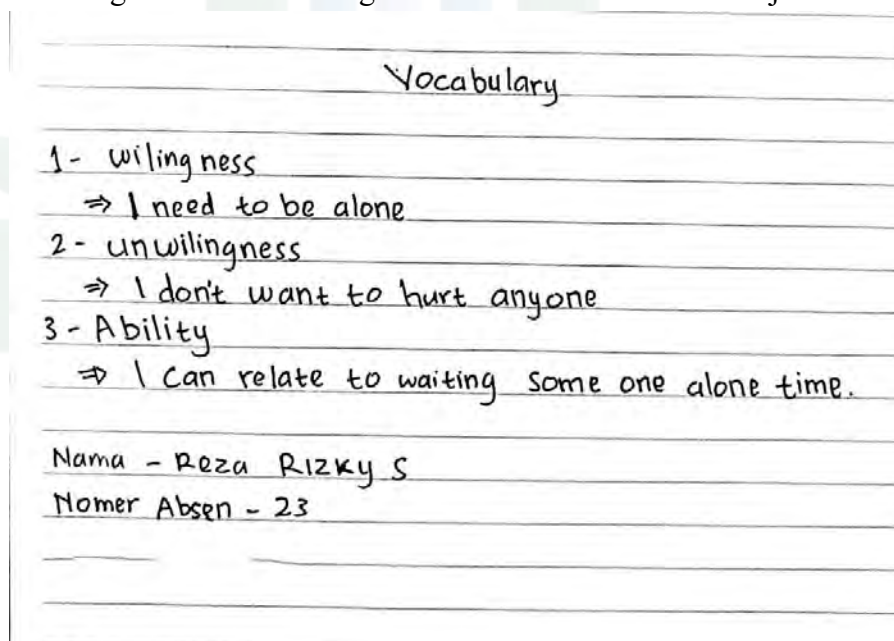 Vocabulary
1- wilingness
⇒ I need to be alone
2- unwilingness
⇒ I don't want to hurt anyone
3- Ability
⇒ I can relate to waiting some one alone time.
Nama - Reza Rizky S
Nomer Absen - 23